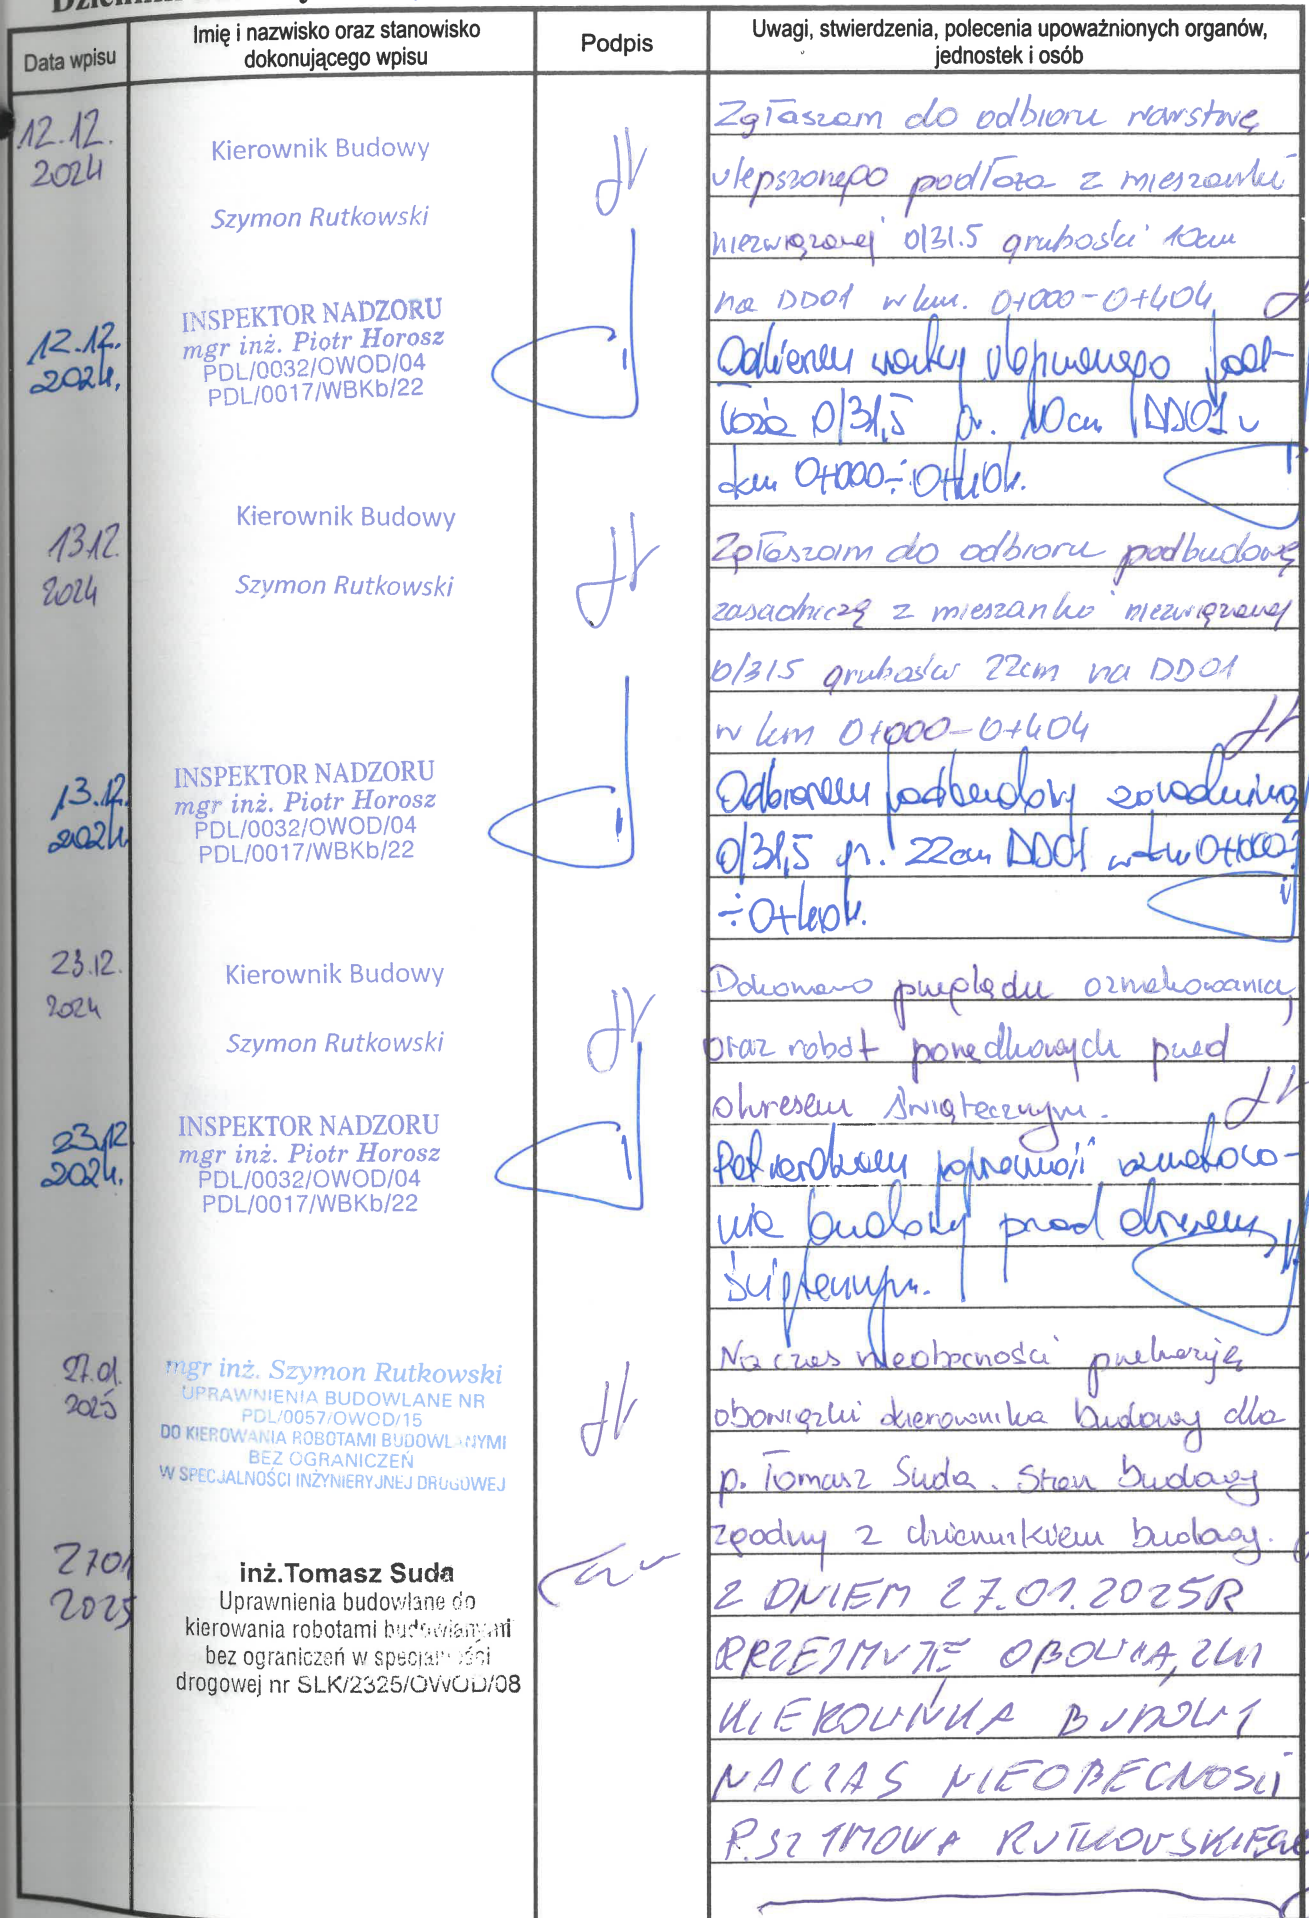 Data wpisu
Imię i nazwisko oraz stanowisko
dokonującego wpisu
Podpis
Uwagi, stwierdzenia, polecenia upoważnionych organów,
jednostek i osób
12.12.
2024
Kierownik Budowy
Szymon Rutkowski
Zgłaszam do odbioru warstwę
ulepszonego podłoża z mieszanki
niezwiązanej 0/31.5 grubości 10cm
na DD01 w km. 0+000-0+404
12.12.
2024.
INSPEKTOR NADZORU
mgr inż. Piotr Horosz
PDL/0032/OWOD/04
PDL/0017/WBKb/22
Odbieram warstwę ulepszonego pod-
łoża 0/31,5 gr. 10cm DD01 w
km 0+000÷0+404.
13.12.
2024
Kierownik Budowy
Szymon Rutkowski
Zgłaszam do odbioru podbudowę
zasadniczą z mieszanki niezwiązanej
0/315 grubości 22cm na DD01
w km 0+000-0+404
13.12.
2024
INSPEKTOR NADZORU
mgr inż. Piotr Horosz
PDL/0032/OWOD/04
PDL/0017/WBKb/22
Odbieram podbudowę zasadniczą
0/31,5 gr. 22cm DD01 w km 0+000÷
÷0+404.
23.12.
2024
Kierownik Budowy
Szymon Rutkowski
Dokonano przeglądu oznakowania,
oraz robót porządkowych przed
okresem świątecznym.
23.12
2024.
INSPEKTOR NADZORU
mgr inż. Piotr Horosz
PDL/0032/OWOD/04
PDL/0017/WBKb/22
Potwierdzam oznakowa-
nie budowy przed okresem
świątecznym.
27.01.
2025
mgr inż. Szymon Rutkowski
UPRAWNIENIA BUDOWLANE NR
PDL/0057/OWOD/15
DO KIEROWANIA ROBOTAMI BUDOWLANYMI
BEZ OGRANICZEŃ
W SPECJALNOŚCI INŻYNIERYJNEJ DROGOWEJ
Na czas nieobecności przekazuję
obowiązki kierownika budowy dla
p. Tomasz Suda. Stan budowy
zgodny z dziennikiem budowy.
27.01
2025
inż.Tomasz Suda
Uprawnienia budowlane do
kierowania robotami budowlanymi
bez ograniczeń w specjalności
drogowej nr SLK/2325/OWOD/08
Z DNIEM 27.01.2025R
PRZEJMUJĘ OBOWIĄZKI
KIEROWNIKA BUDOWY
NA CZAS NIEOBECNOŚCI
P. SZYMONA RUTKOWSKIEGO